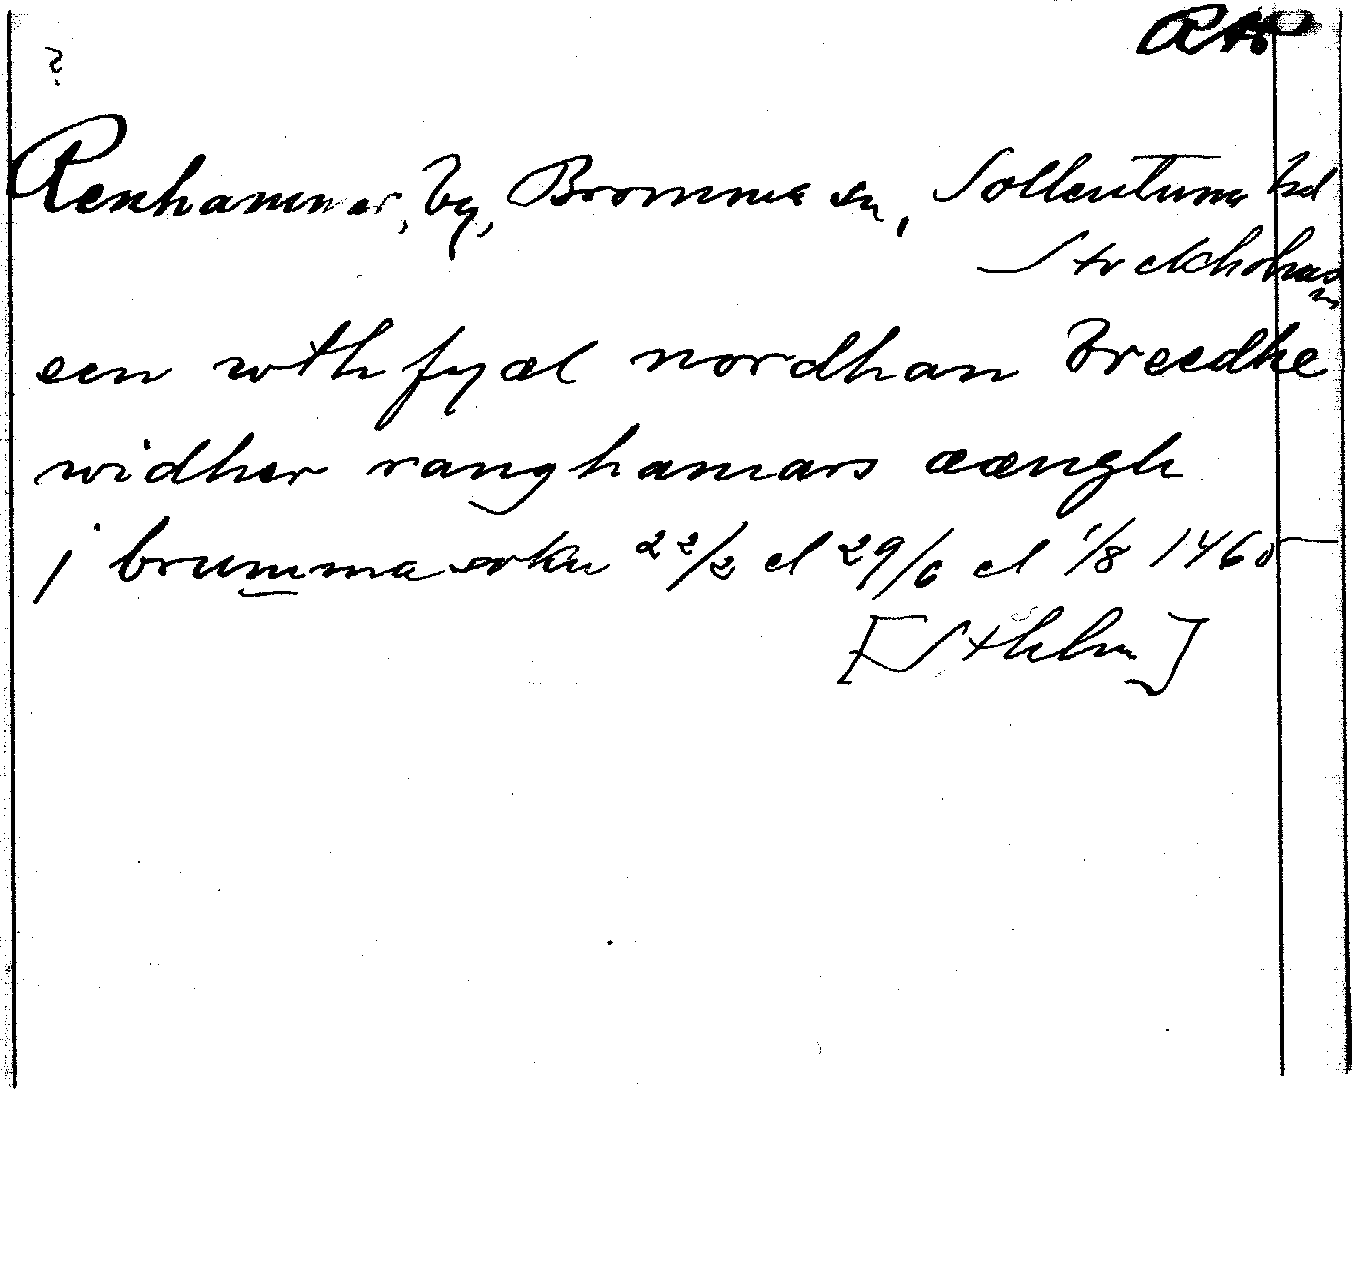 ?
RAp
Renhammar, by, Bromma sn, Sollentuna hd
Stockholms
een wthfyæl nordhan breedhe
widher ranghamars æængh
j brumma sokn 22/2 el 29/6 el 1/8 1460
[Sthlm]